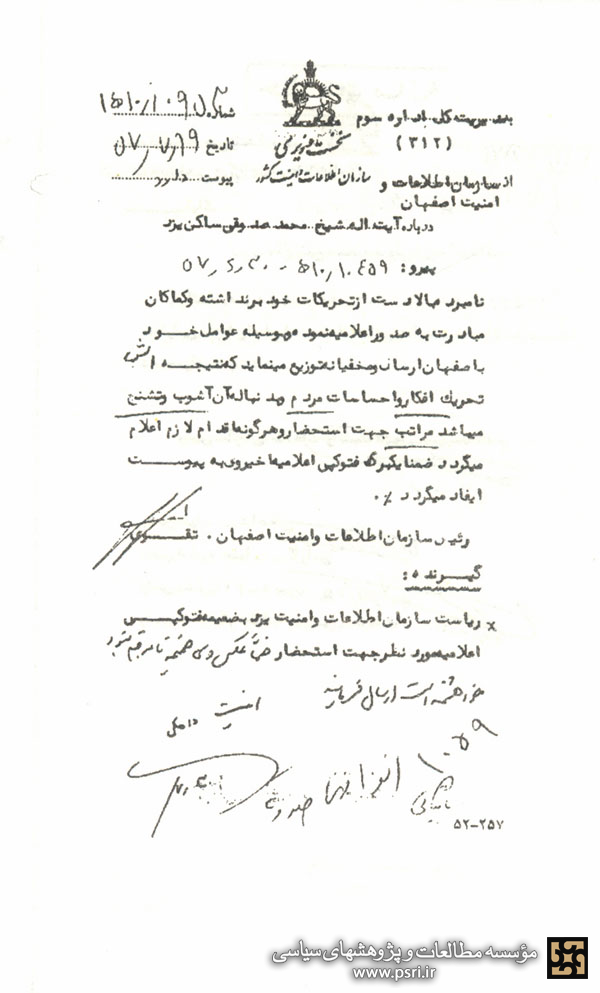 بمدیریت کل اداره سوم
(۳۱۲)
نخست وزیری
سازمان اطلاعات و امنیت کشور
شماره
تاریخ ۵۷٫۷٫۱۹
پیوست دارد
از سازمان اطلاعات و
امنیت اصفهان
درباره آیت اله شیخ محمد صدوقی ساکن یزد
پیرو: ۱۰٫۱۰۴۵۹ ه - ۵۷٫۶٫۳۰
نامبرده بالا دست از تحریکات خود برنداشته و کماکان
مبادرت به صدور اعلامیه نموده و بوسیله عوامل خود
باصفهان ارسال و مخفیانه توزیع مینماید که نتیجه اش
تحریک افکار و احساسات مردم و دنباله آن آشوب و تشنج
میباشد مراتب جهت استحضار و هرگونه اقدام لازم اعلام
میگردد ضمنا یکبرگ فتوکپی اعلامیه اخیر وی به پیوست
ایفاد میگردد ٪
رئیس سازمان اطلاعات و امنیت اصفهان . تقوی
گیرنده :
× ریاست سازمان اطلاعات و امنیت یزد بضمیمه فتوکپی
اعلامیه مورد نظر جهت استحضار ضمناً عکس
خواهشمند است ارسال فرمایند
امنیت داخلی
بایگانی
۵۲-۲۵۷
مؤسسه مطالعات و پژوهشهای سیاسی
www.psri.ir